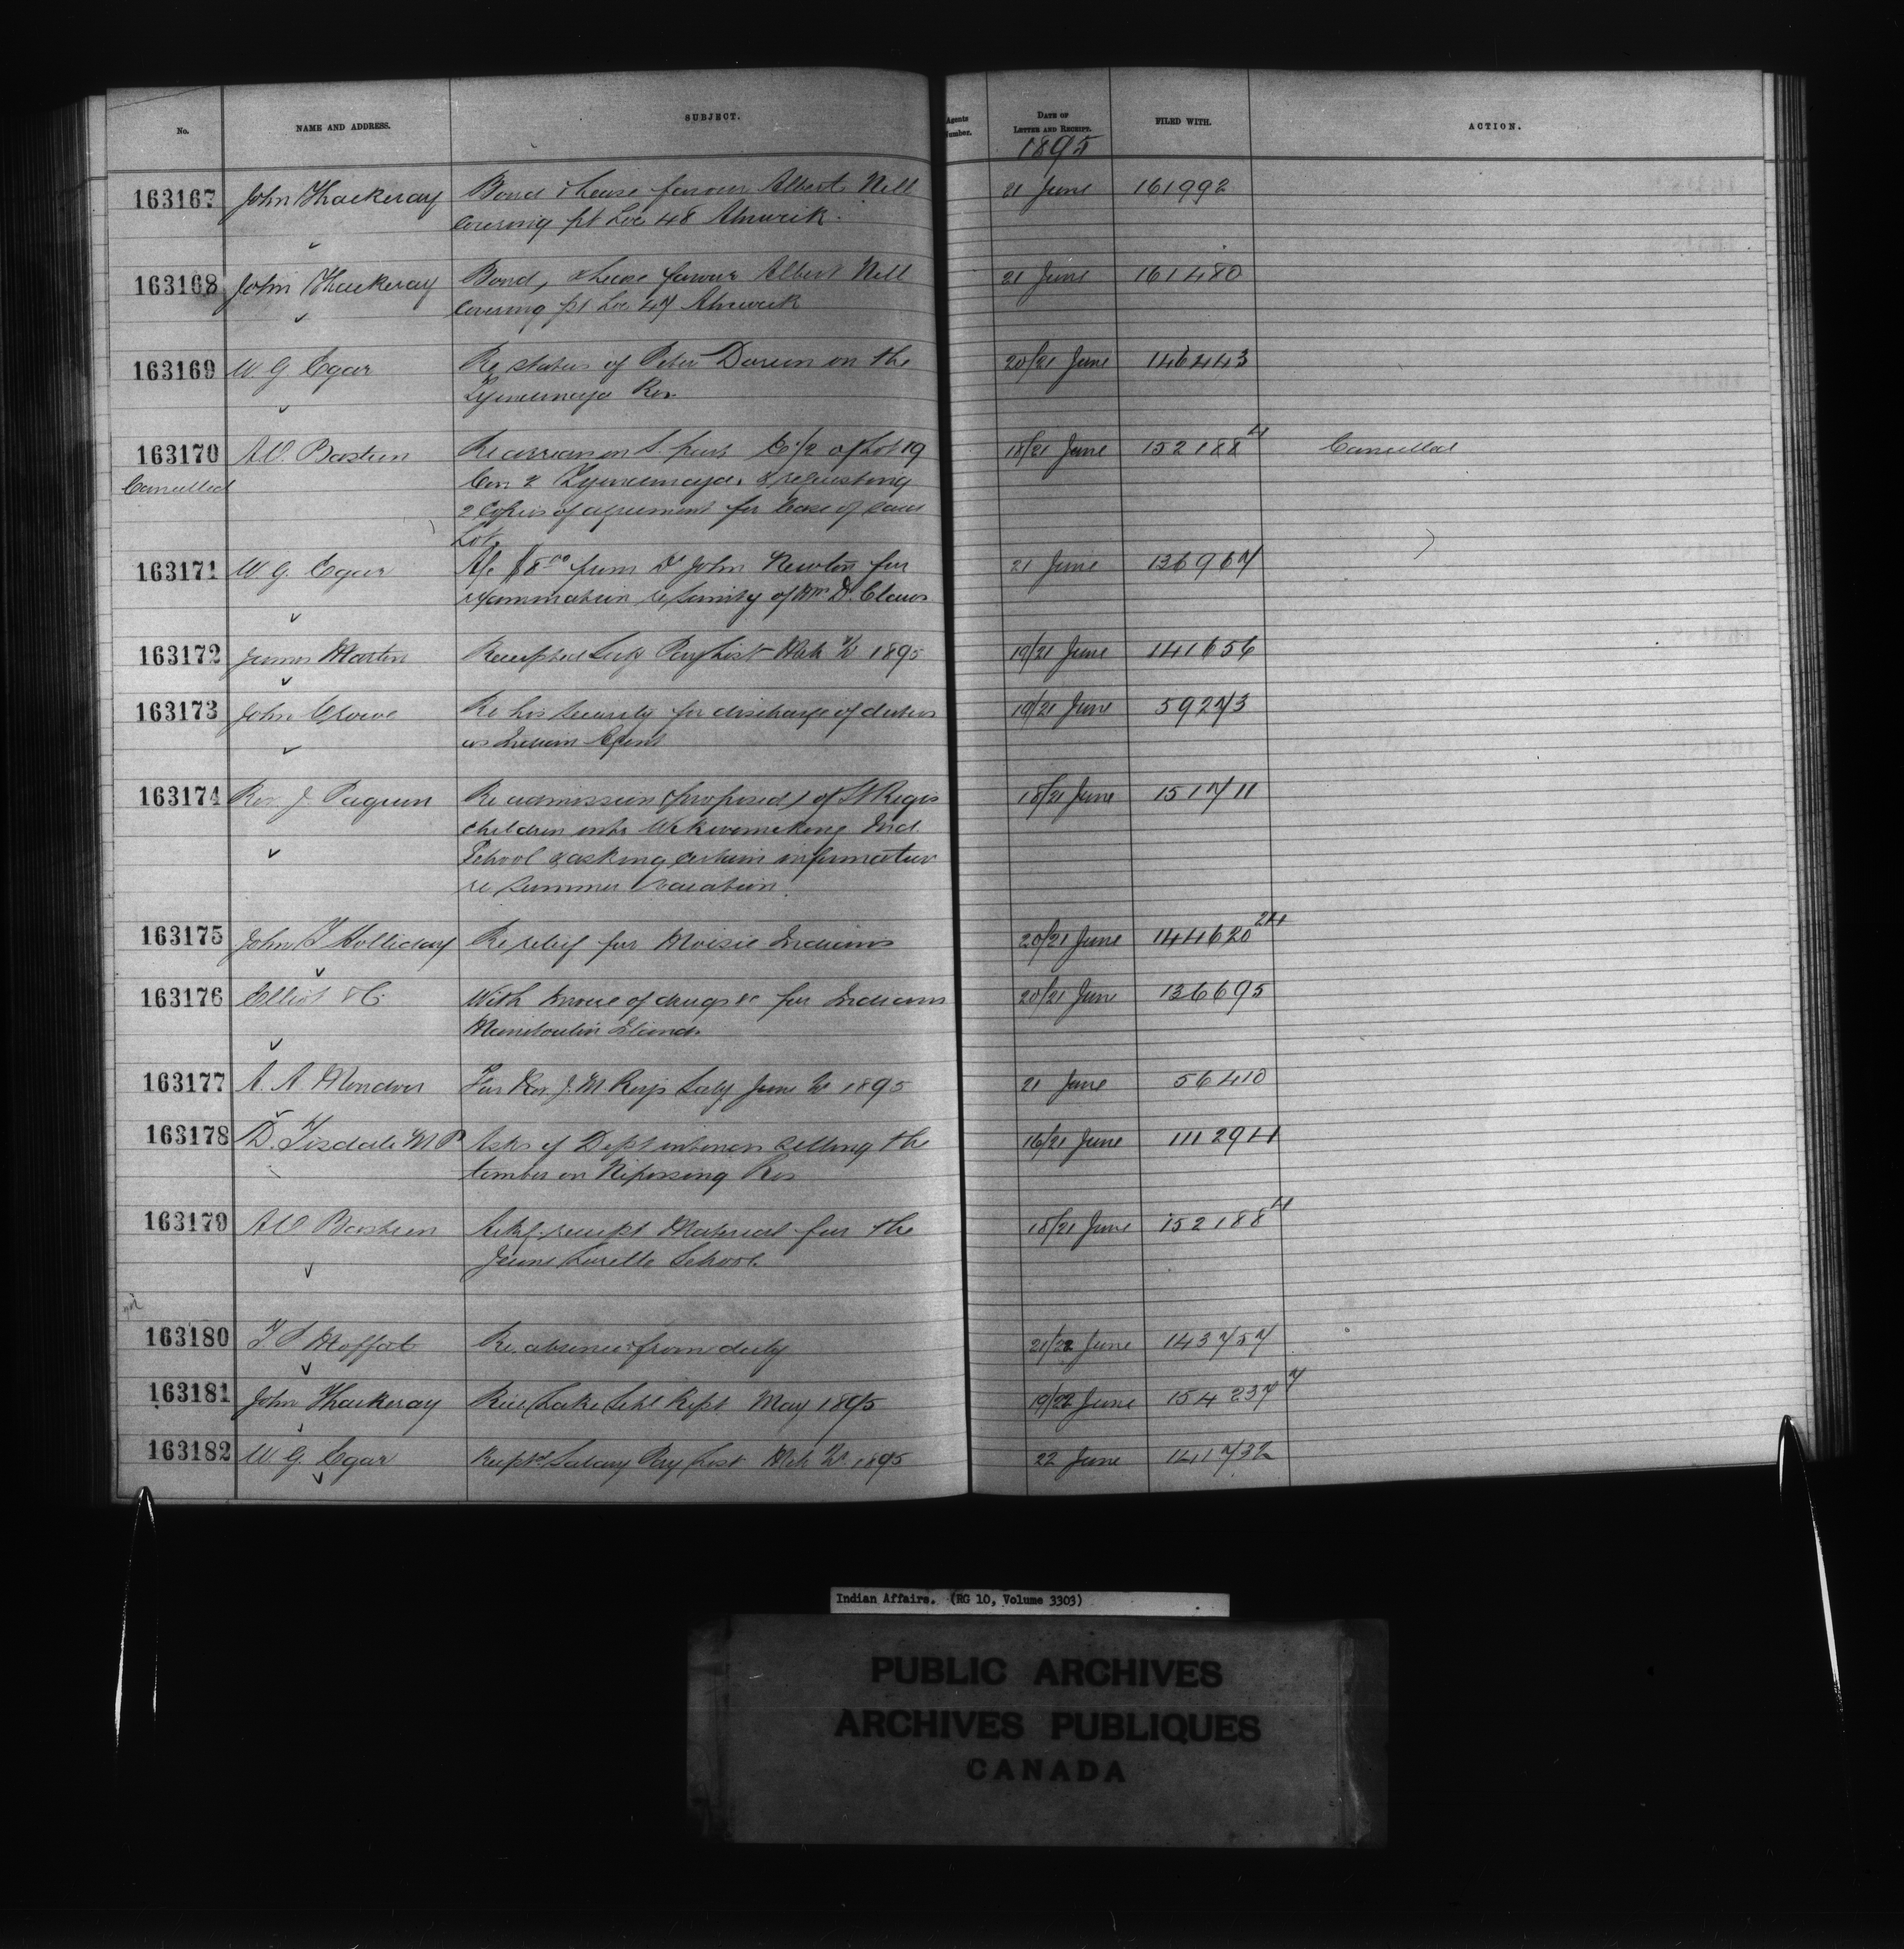 No. NAME AND ADDRESS. SUBJECT. Agents Number. DATE OF LETTER AND RECEIPT. FILED WITH. ACTION.
1895
163167 John Thackeray Bond & lease favour Albert Nell 21 June 161992
Covering pt Lot 48 Alnwick.
163168 John Thackeray Bond, & lease favour Albert Nell 21 June 161480
Covering pt Lot 47 Alnwick
163169 W. G Egar Re status of Peter on the 20/21 June 146443
Tyendinaga Res.
163170 A.O. Bastien Re S. part E 1/2 of Lot 19 18/21 June 152188 4 Cancelled
Cancelled Con 2 Tyendinaga. & requesting
2 Copies of agreement for lease of said
Lot.
163171 W. G. Egar A/c $8 00 from Dr John Newton for 21 June 136967
examination re sanity of Wm D. Claus
163172 James Martin Receipted Sup Pay List Mch 1/4 1895 19/21 June 141656
163173 John Crowe Re his Security for discharge of duties 19/21 June 59273
as Indian Agent
163174 Rev. J Paquin Re admission (proposed) of St Regis 18/21 June 151711
children into Wikwemikong Ind.
School & asking certain information
re summer vacation.
163175 John Holliday Re relief for Moisie Indians 20/21 June 144620 24
163176 Elliot & Co. With Invoice of drugs &c for Indians 20/21 June 136695
Manitoulin Island.
163177 A. A. Mondou For Rev. J. M Roy's Saly June 1/4 1895 21 June 56410
163178 D. Tisdale M P Asks if Dept intends selling the 16/21 June 111291
timber on Nipissing Res
163179 A O Bastien Ackg. receipt Material for the 18/21 June 152188 4
Jeune Lorette School.
163180 T. S Moffat Re. absence from duty 21/22 June 143757
163181 John Thackeray Rice Lake Schl Rept May 1895 19/22 June 154237 7
163182 W. G Egar Receptd Salary Pay List Mch 1/4 1895 22 June 141732
Indian Affairs. (RG 10, Volume 3303)
PUBLIC ARCHIVES
ARCHIVES PUBLIQUES
CANADA